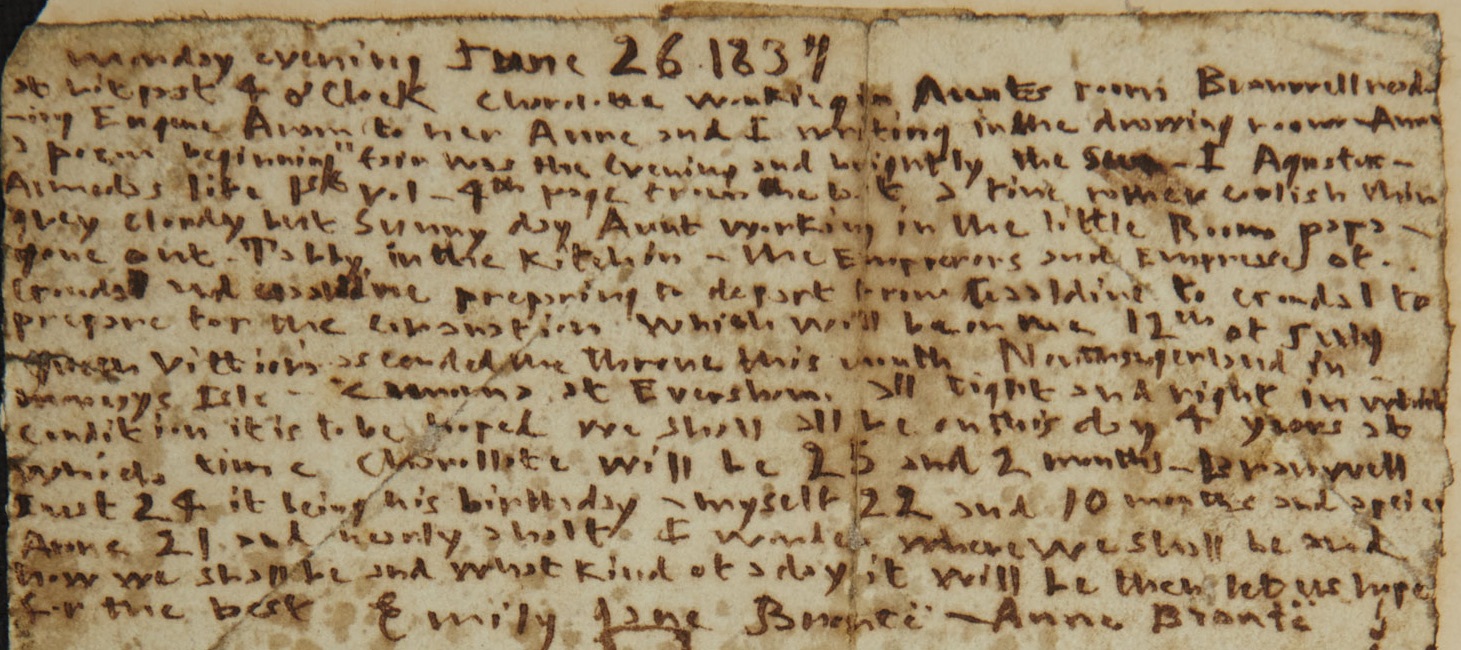 Monday evening June 26 1837
at bit past 4 o'Clock Charlotte working in Aunts room Branwell reada
-ing Eugene Aram to her Anne and I writing in the drawing room Anne
a poem beginning "fair was the Evening and brightly the Sun - I Agustus -
Almedas life 1st vol - 4th page from the a fine rather coolish thin
grey cloudy but Sunny day Aunt working in the little Room papa -
gone out. Tabby in the Kitchin - the Emperors and Empresses of
Gondal and Gaaldine preparing to depart from Gaaldine to Gondal to
prepare for the coranation which will be on the 12th of July
Queen Vittiora ascended the throne this month Northangerland in
Monceys Isle - Zamorna at Eversham. all tight and right in which
condition it is to be hoped we shall all be on this day 4 years at
which time Charollote will be 25 and 2 months - Branwell
Just 24 it being his birthday - myself 22 and 10 months and a peice
Anne 21 and nearly a half I wonder where we shall be and
how we shall be and what kind of a day it will be then let us hope
for the best Emily Jane Brontë - Anne Brontë